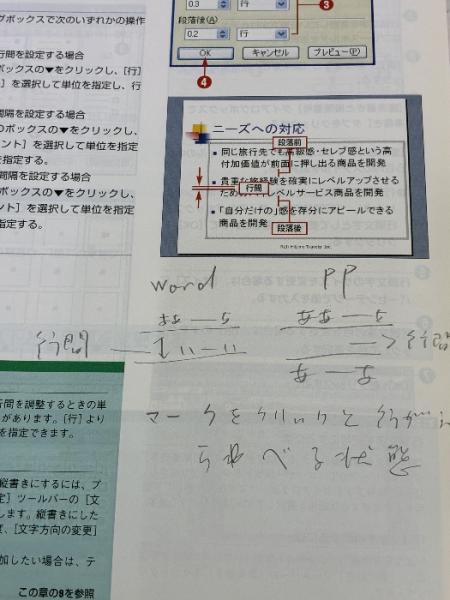 グボックスで次のいずれかの操作
行間を設定する場合
ボックスの▼をクリックし、[行]
]を選択して単位を指定し、行
間隔を設定する場合
のボックスの▼をクリックし、
ント]を選択して単位を指定
を指定する。
間隔を設定する場合
ボックスの▼をクリックし、
ント]を選択して単位を指定
指定する。
0.3 行 3
段落後(A)
0.2 行
OK キャンセル プレビュー(P)
4
ニーズへの対応
段落前
同じ旅行先でも高級感・セレブ感という高
付加価値が前面に押し出る商品を開発
貴重な旅経験を確実にレベルアップさせる
行間
ための レベルサービス商品を開発
「自分だけの」感を存分にアピールできる
商品を開発
段落後
word PP
ああーち
行間 いーい 行間
あーあ
マークをクリックと行が
らゆべる状態
行間を調整するときの単
があります。[行]より
を指定できます。
縦書きにするには、プ
定]ツールバーの[文
します。縦書きにした
ば、[文字方向の変更]
加したい場合は、テ
この章の9を参照